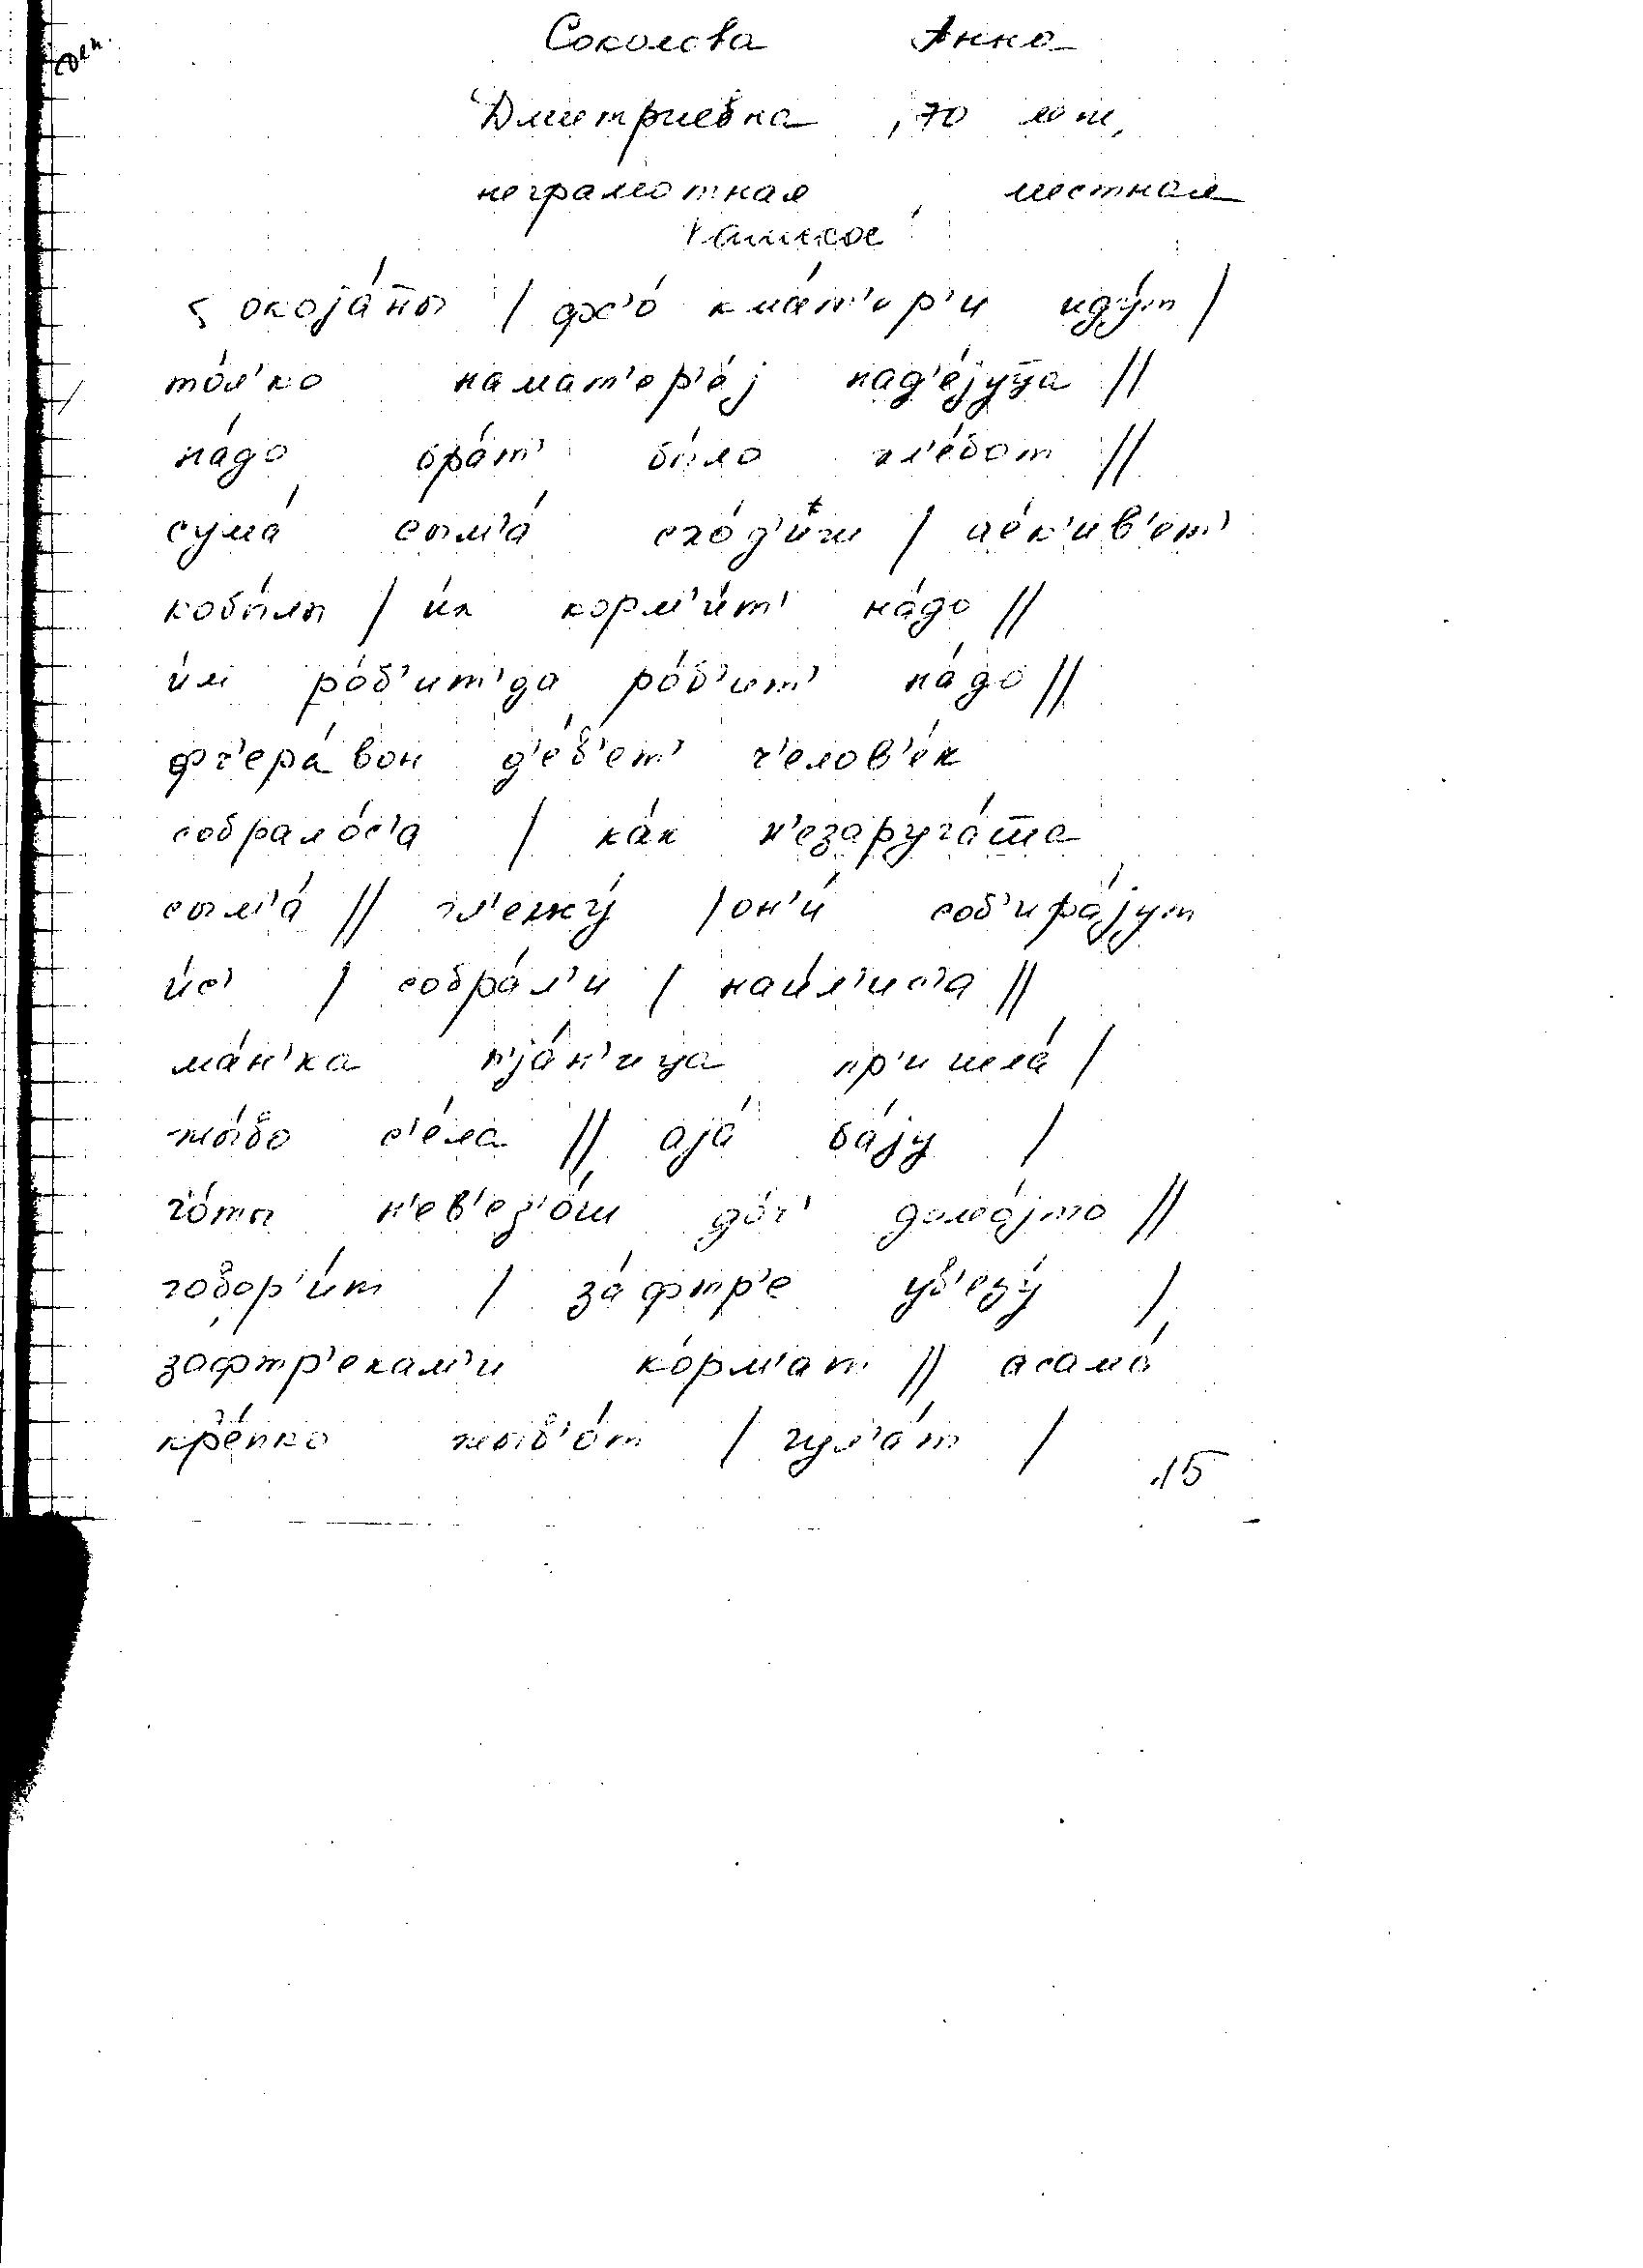 Соколова Анна
Дмитриевна, 70 лет,
неграмотная, местная
окоја́н̄ы / фс'о́ кма́т'ер'и иду́т /
то́л'ко намат'ер'е́ј над'е́јуц̄а //
на́до бра́т' бы́ло хл'е́бот //
сума́ сым'а́ схо́д'иш / аéк'ив'ет'
кобы́лы / и́х корм'и́т' на́до //
и́м ро́б'ит'да ро́б'ит' на́до //
фч'ера́вон д'е́в'ет' ч'елов'е́к
собрало́с'а / ка́к н'езаруга́т̄а
сым'а́ // гл'ежу́ / он'и́ соб'ира́јут
и́с' / собра́л'и / наи́л'ис'а //
ма́н'ка п'ја́н'ица пр'ишла́ /
жы́во с'е́ла // аја́ ба́ју /
ч'о́ты н'ев'ез'о́ш до́ч' домо́јто //
говор'и́т / за́фтр'е ув'езу́ /
за́фтр'екам'и ко́рм'ат // асамо́
кр'е́пко жыв'о́т / гул'а́т /
15